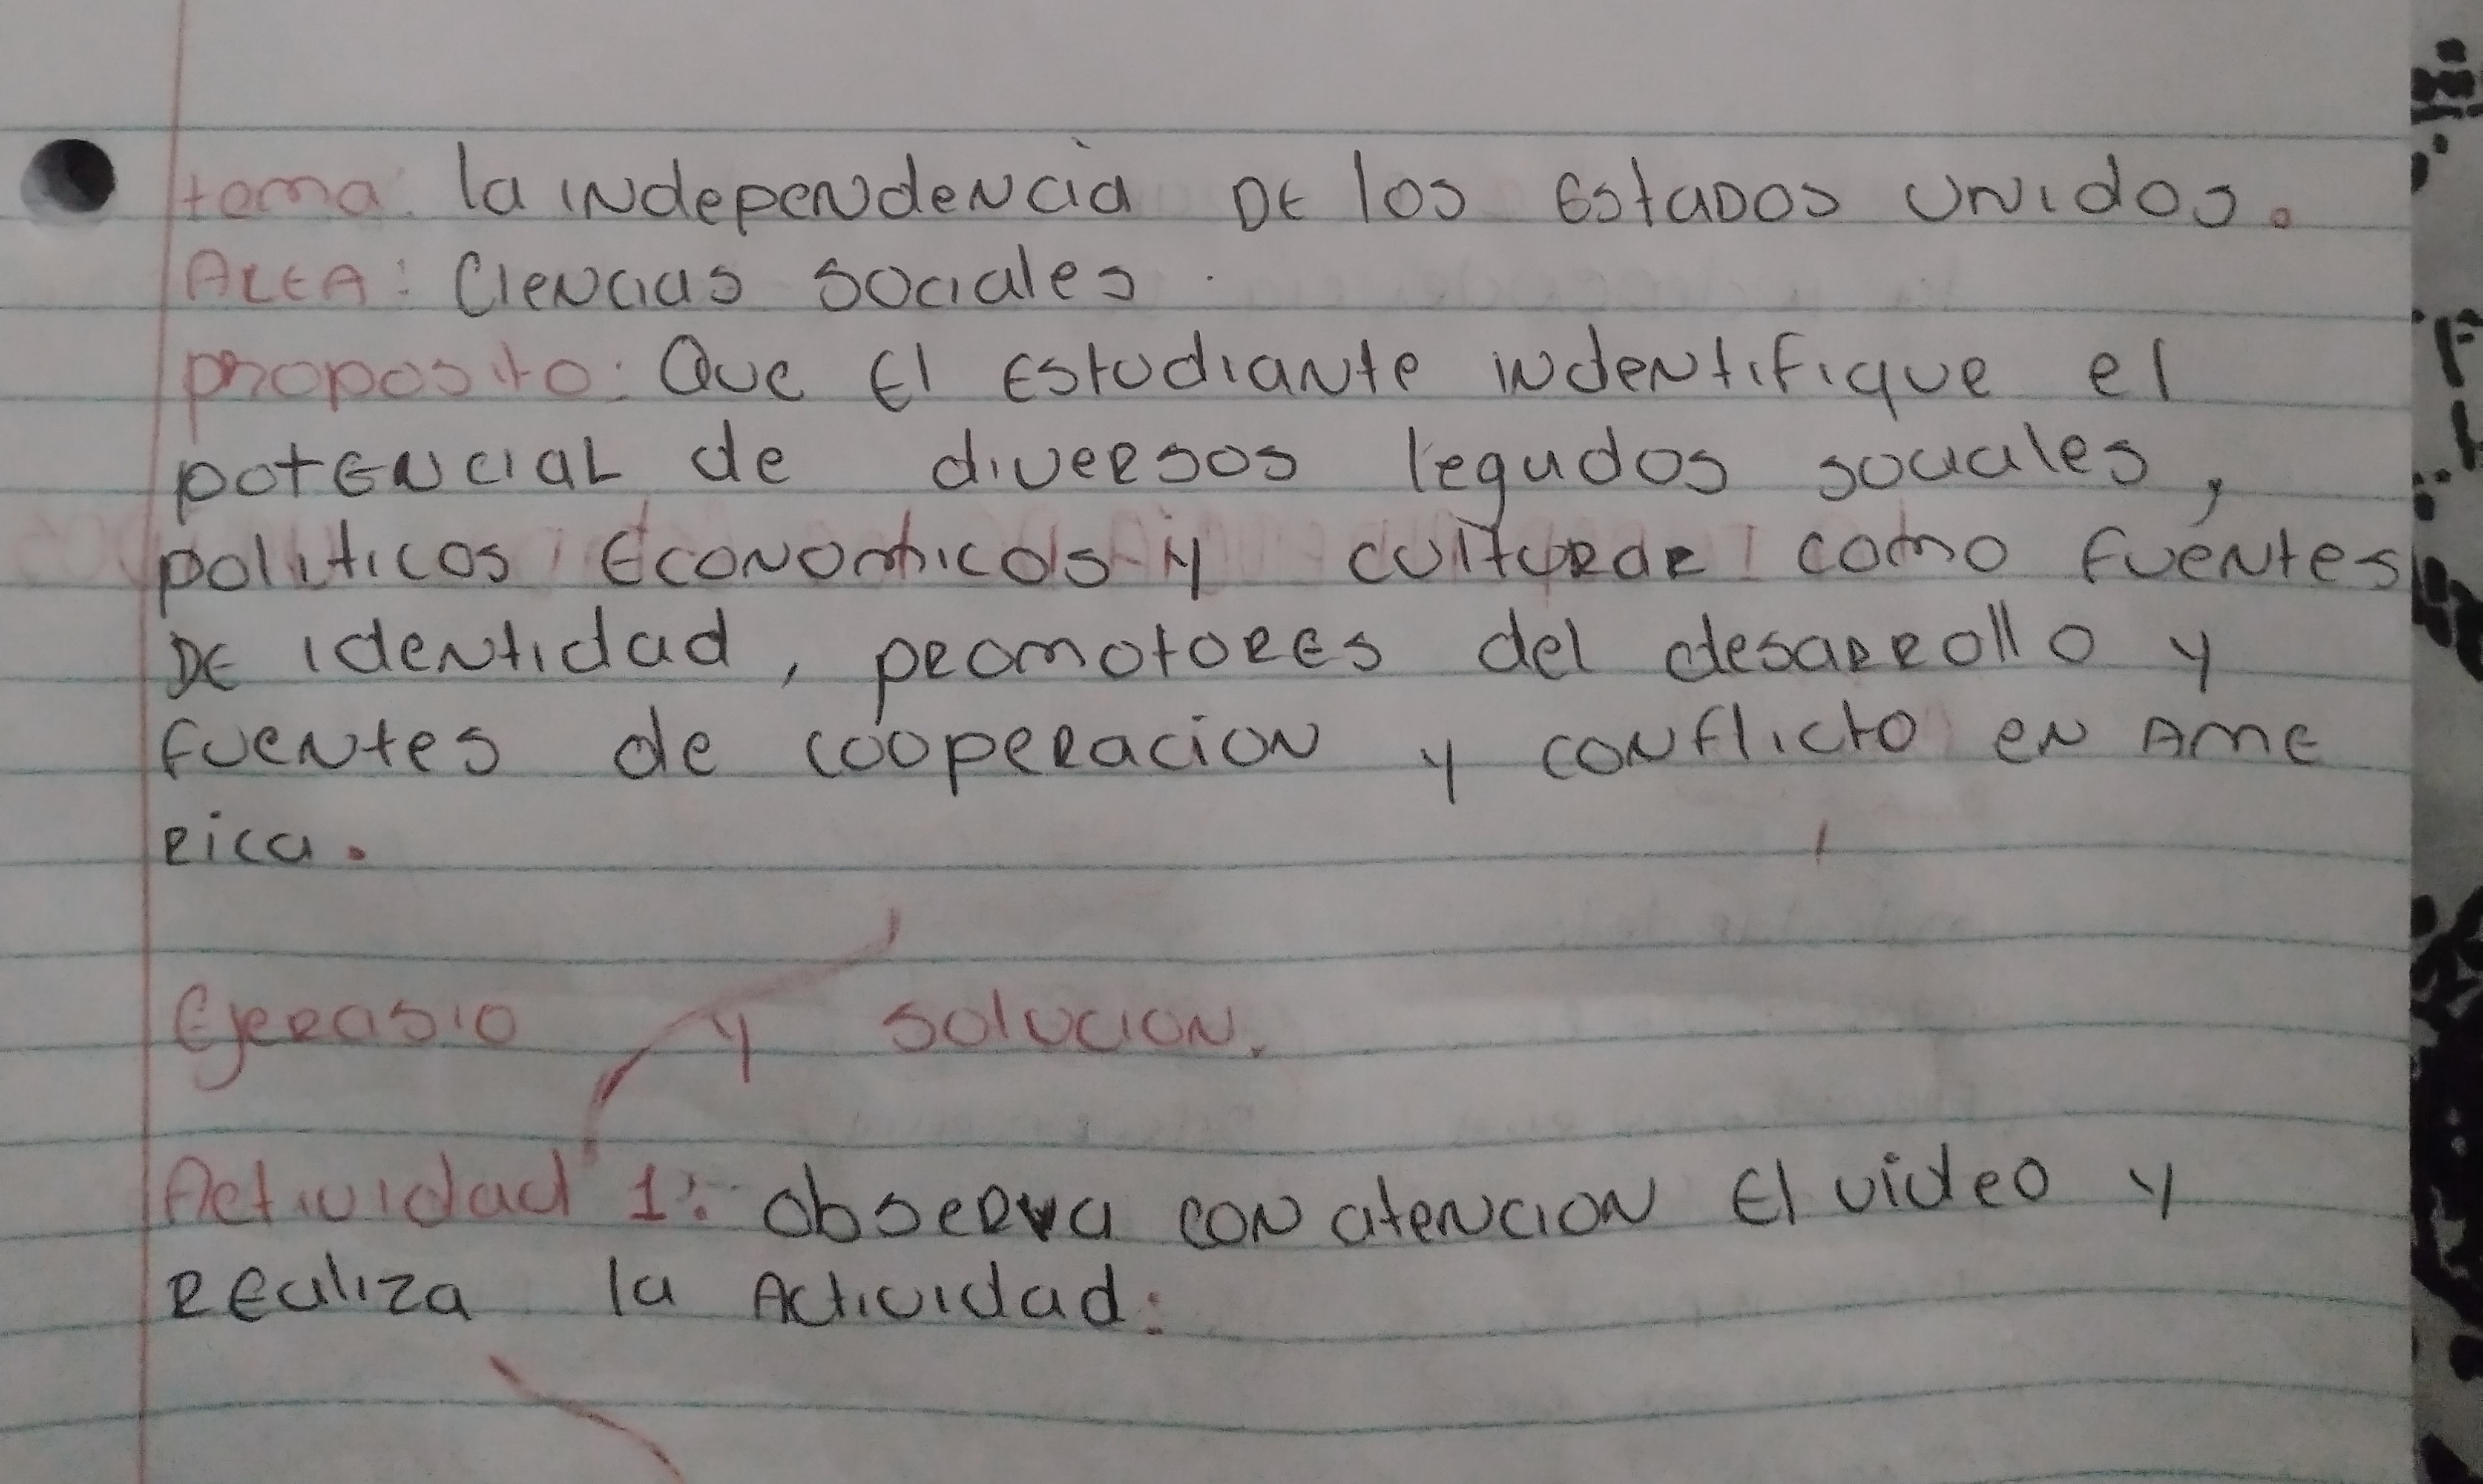 tema: la independencia DE los Estados unidos.
AREA: Ciencias sociales.
proposito: Que El Estudiante indentifique el
potencial de diversos legados sociales,
politicos Economicos y culturar como fuentes
DE identidad, promotores del desarrollo y
fuentes de cooperacion y conflicto en Ame
rica.
Ejercisio y solucion.
Actividad 1: observa con atencion El video y
Realiza la Actividad: